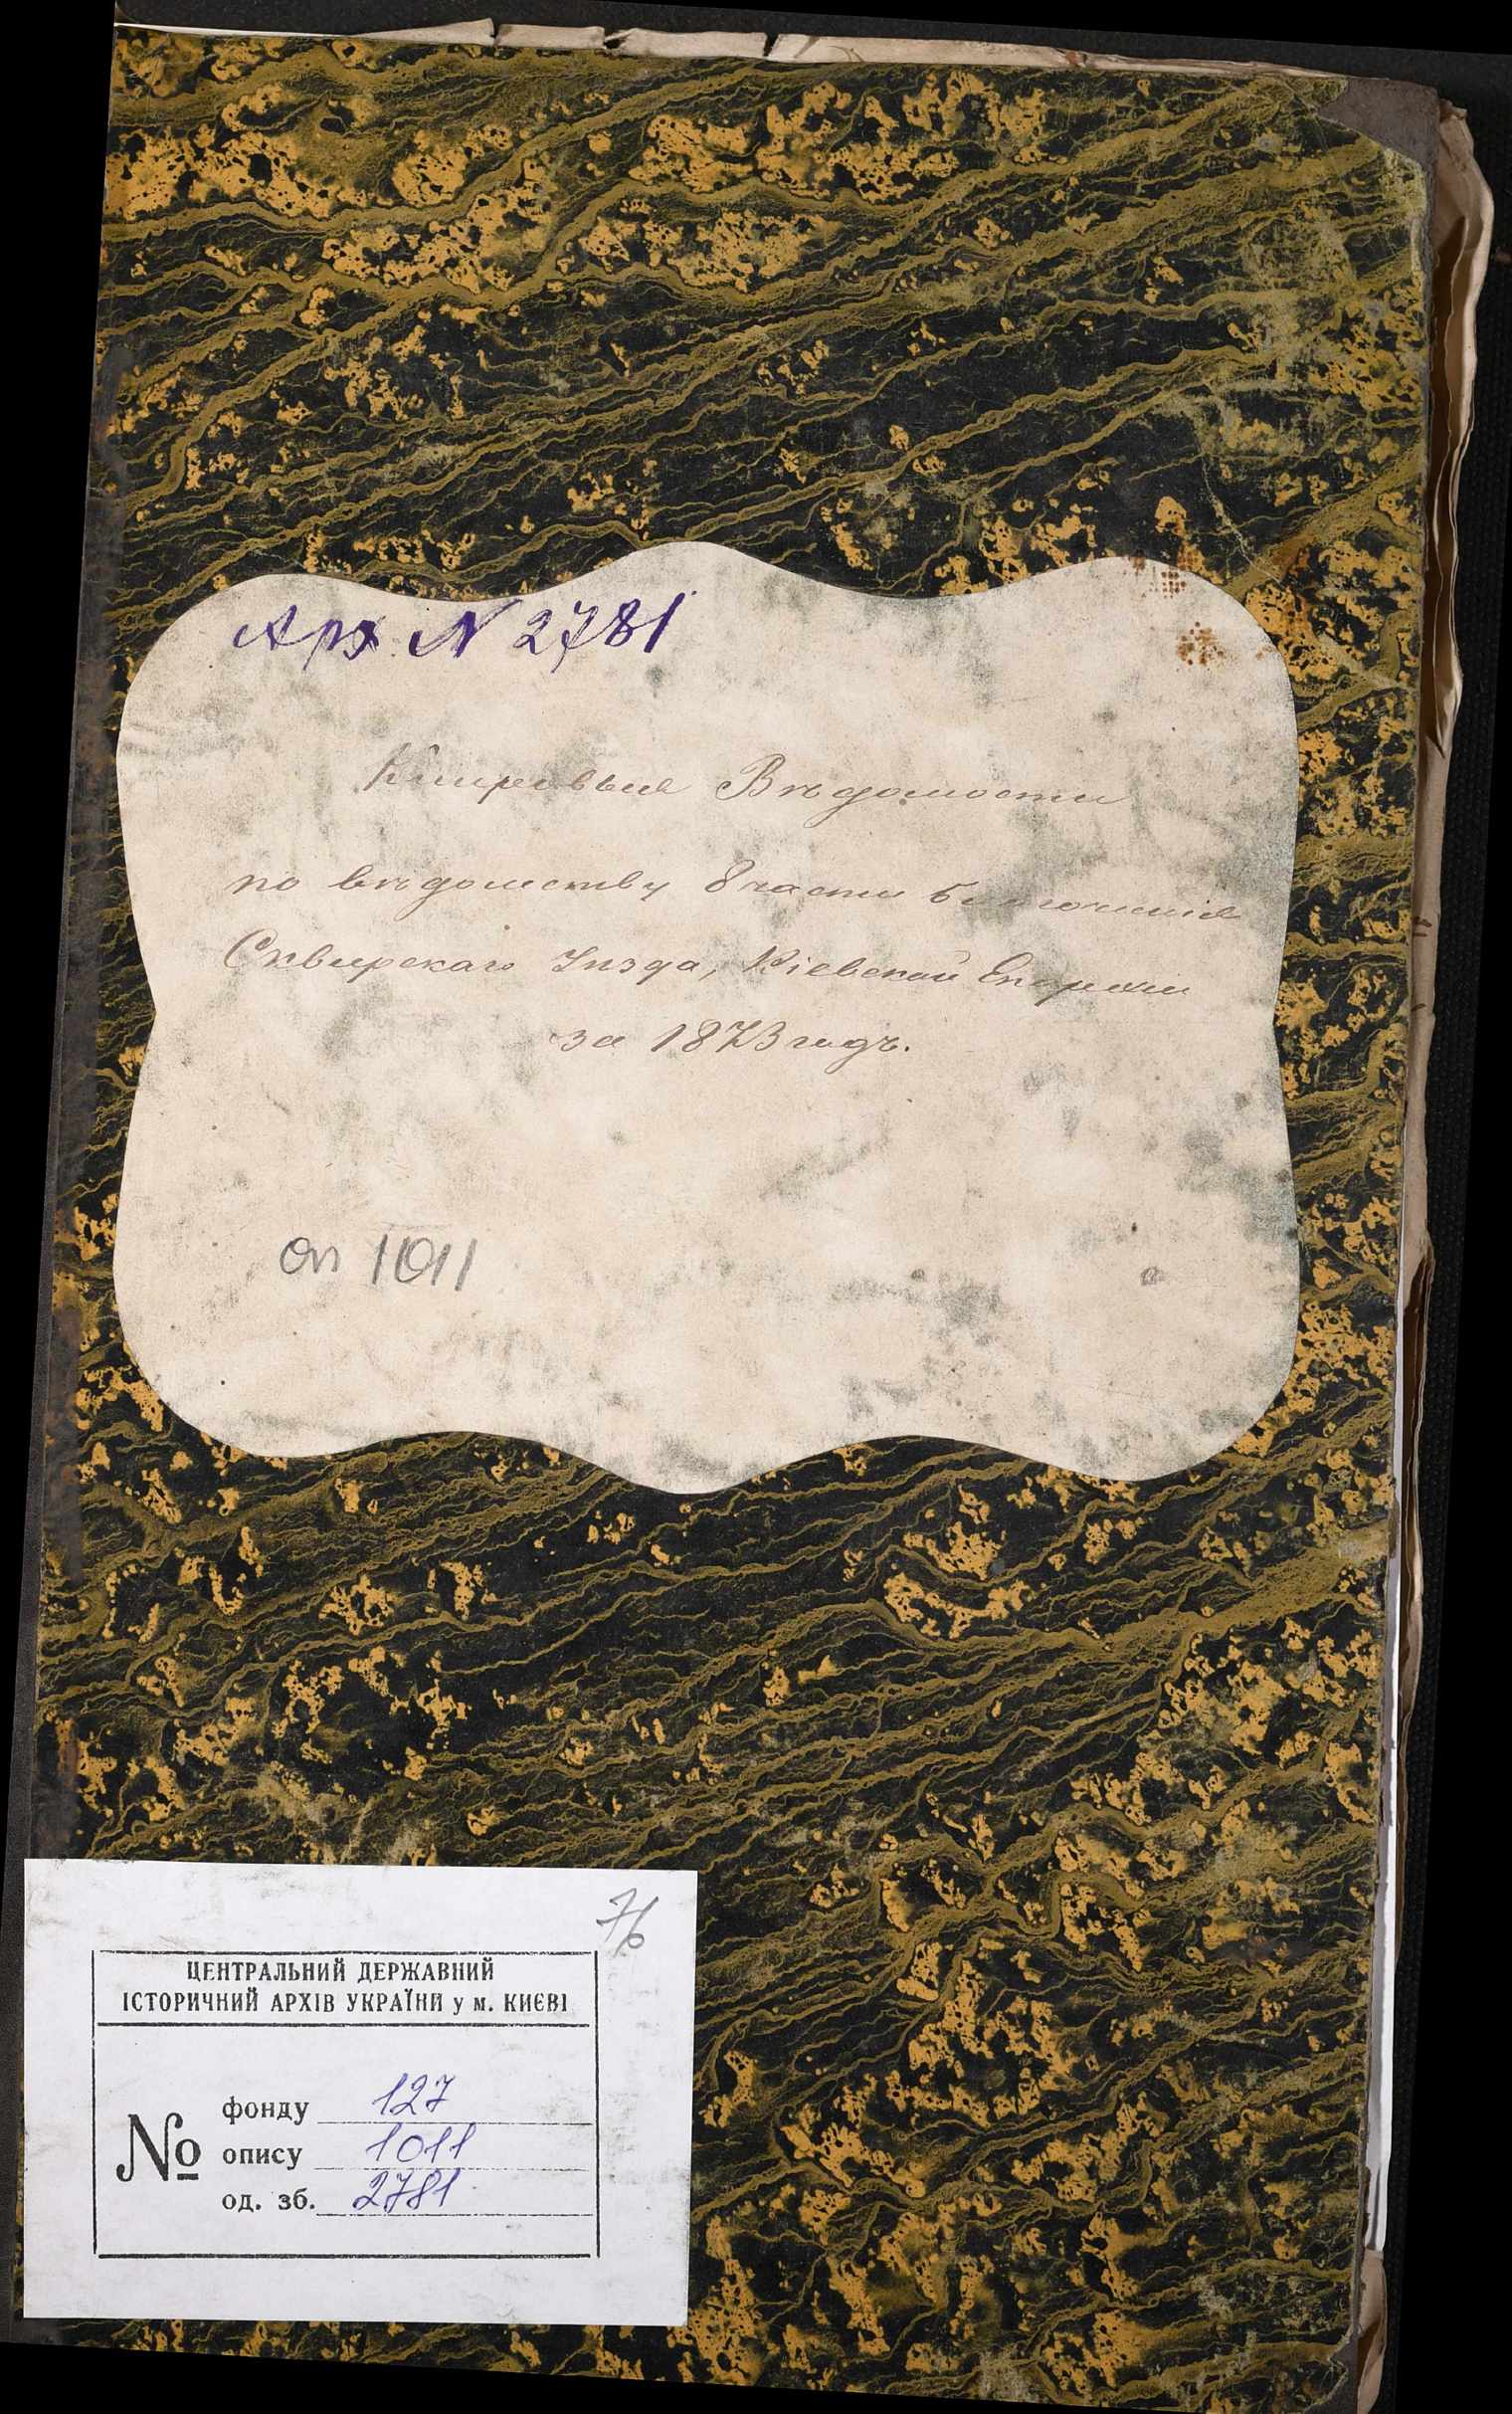 Арх. N 2781
Клировыя Вѣдомости
по вѣдомству 8 части Благочинія
Сквирскаго Уѣзда, Кіевской Епархіи
за 1873 годъ.
оп 1011
76
ЦЕНТРАЛЬНИЙ ДЕРЖАВНИЙ
ІСТОРИЧНИЙ АРХІВ УКРАЇНИ у м. КИЄВІ
№
фонду 127
опису 1011
од. зб. 2781